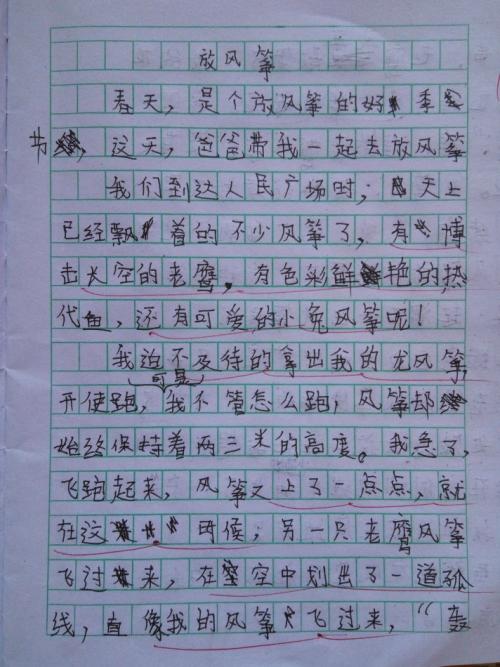 放风筝
春天，是个放风筝的好季
节，这天，爸爸带我一起去放风筝
我们到达人民广场时；天上
已经飘着的不少风筝了，有博
击长空的老鹰，有色彩鲜艳的热
代鱼，还有可爱的小兔风筝呢！
我迫不及待的拿出我的龙风筝，
可是
开使跑，我不管怎么跑，风筝却
始终保持着两三米的高度。我急了，
飞跑起来，风筝又上了一点点，就
在这时候；另一只老鹰风筝
飞过来，在空中划出了一道弧
线，直像我的风筝飞过来，“轰